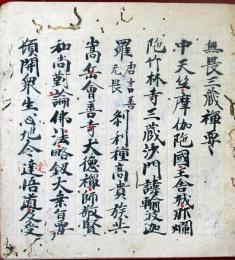 無畏三蔵禅要
中天竺摩伽陀國王舎城那爛
陀竹林寺三蔵沙門諱輸波迦
羅唐言善無畏刹利種高貴族共
嵩岳會善寺大德禅師敬賢
和尚對論佛法略叙大乗旨要
頓開衆生心地令速悟道受